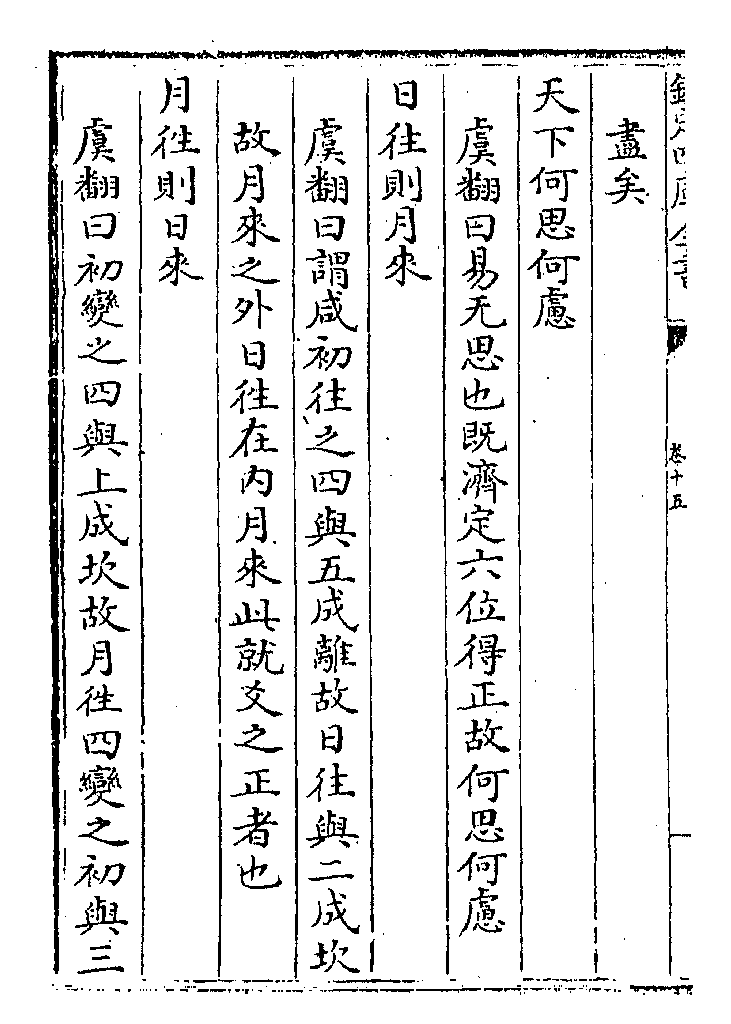 欽定四庫全書
卷十五
盡矣
天下何思何慮
虞翻曰易无思也既濟定六位得正故何思何慮
日往則月來
虞翻曰謂咸初往之四與五成離故日往與二成坎
故月來之外日徃在内月來此就爻之正者也
月徃則日來
虞翻曰初變之四與上成坎故月徃四變之初與三